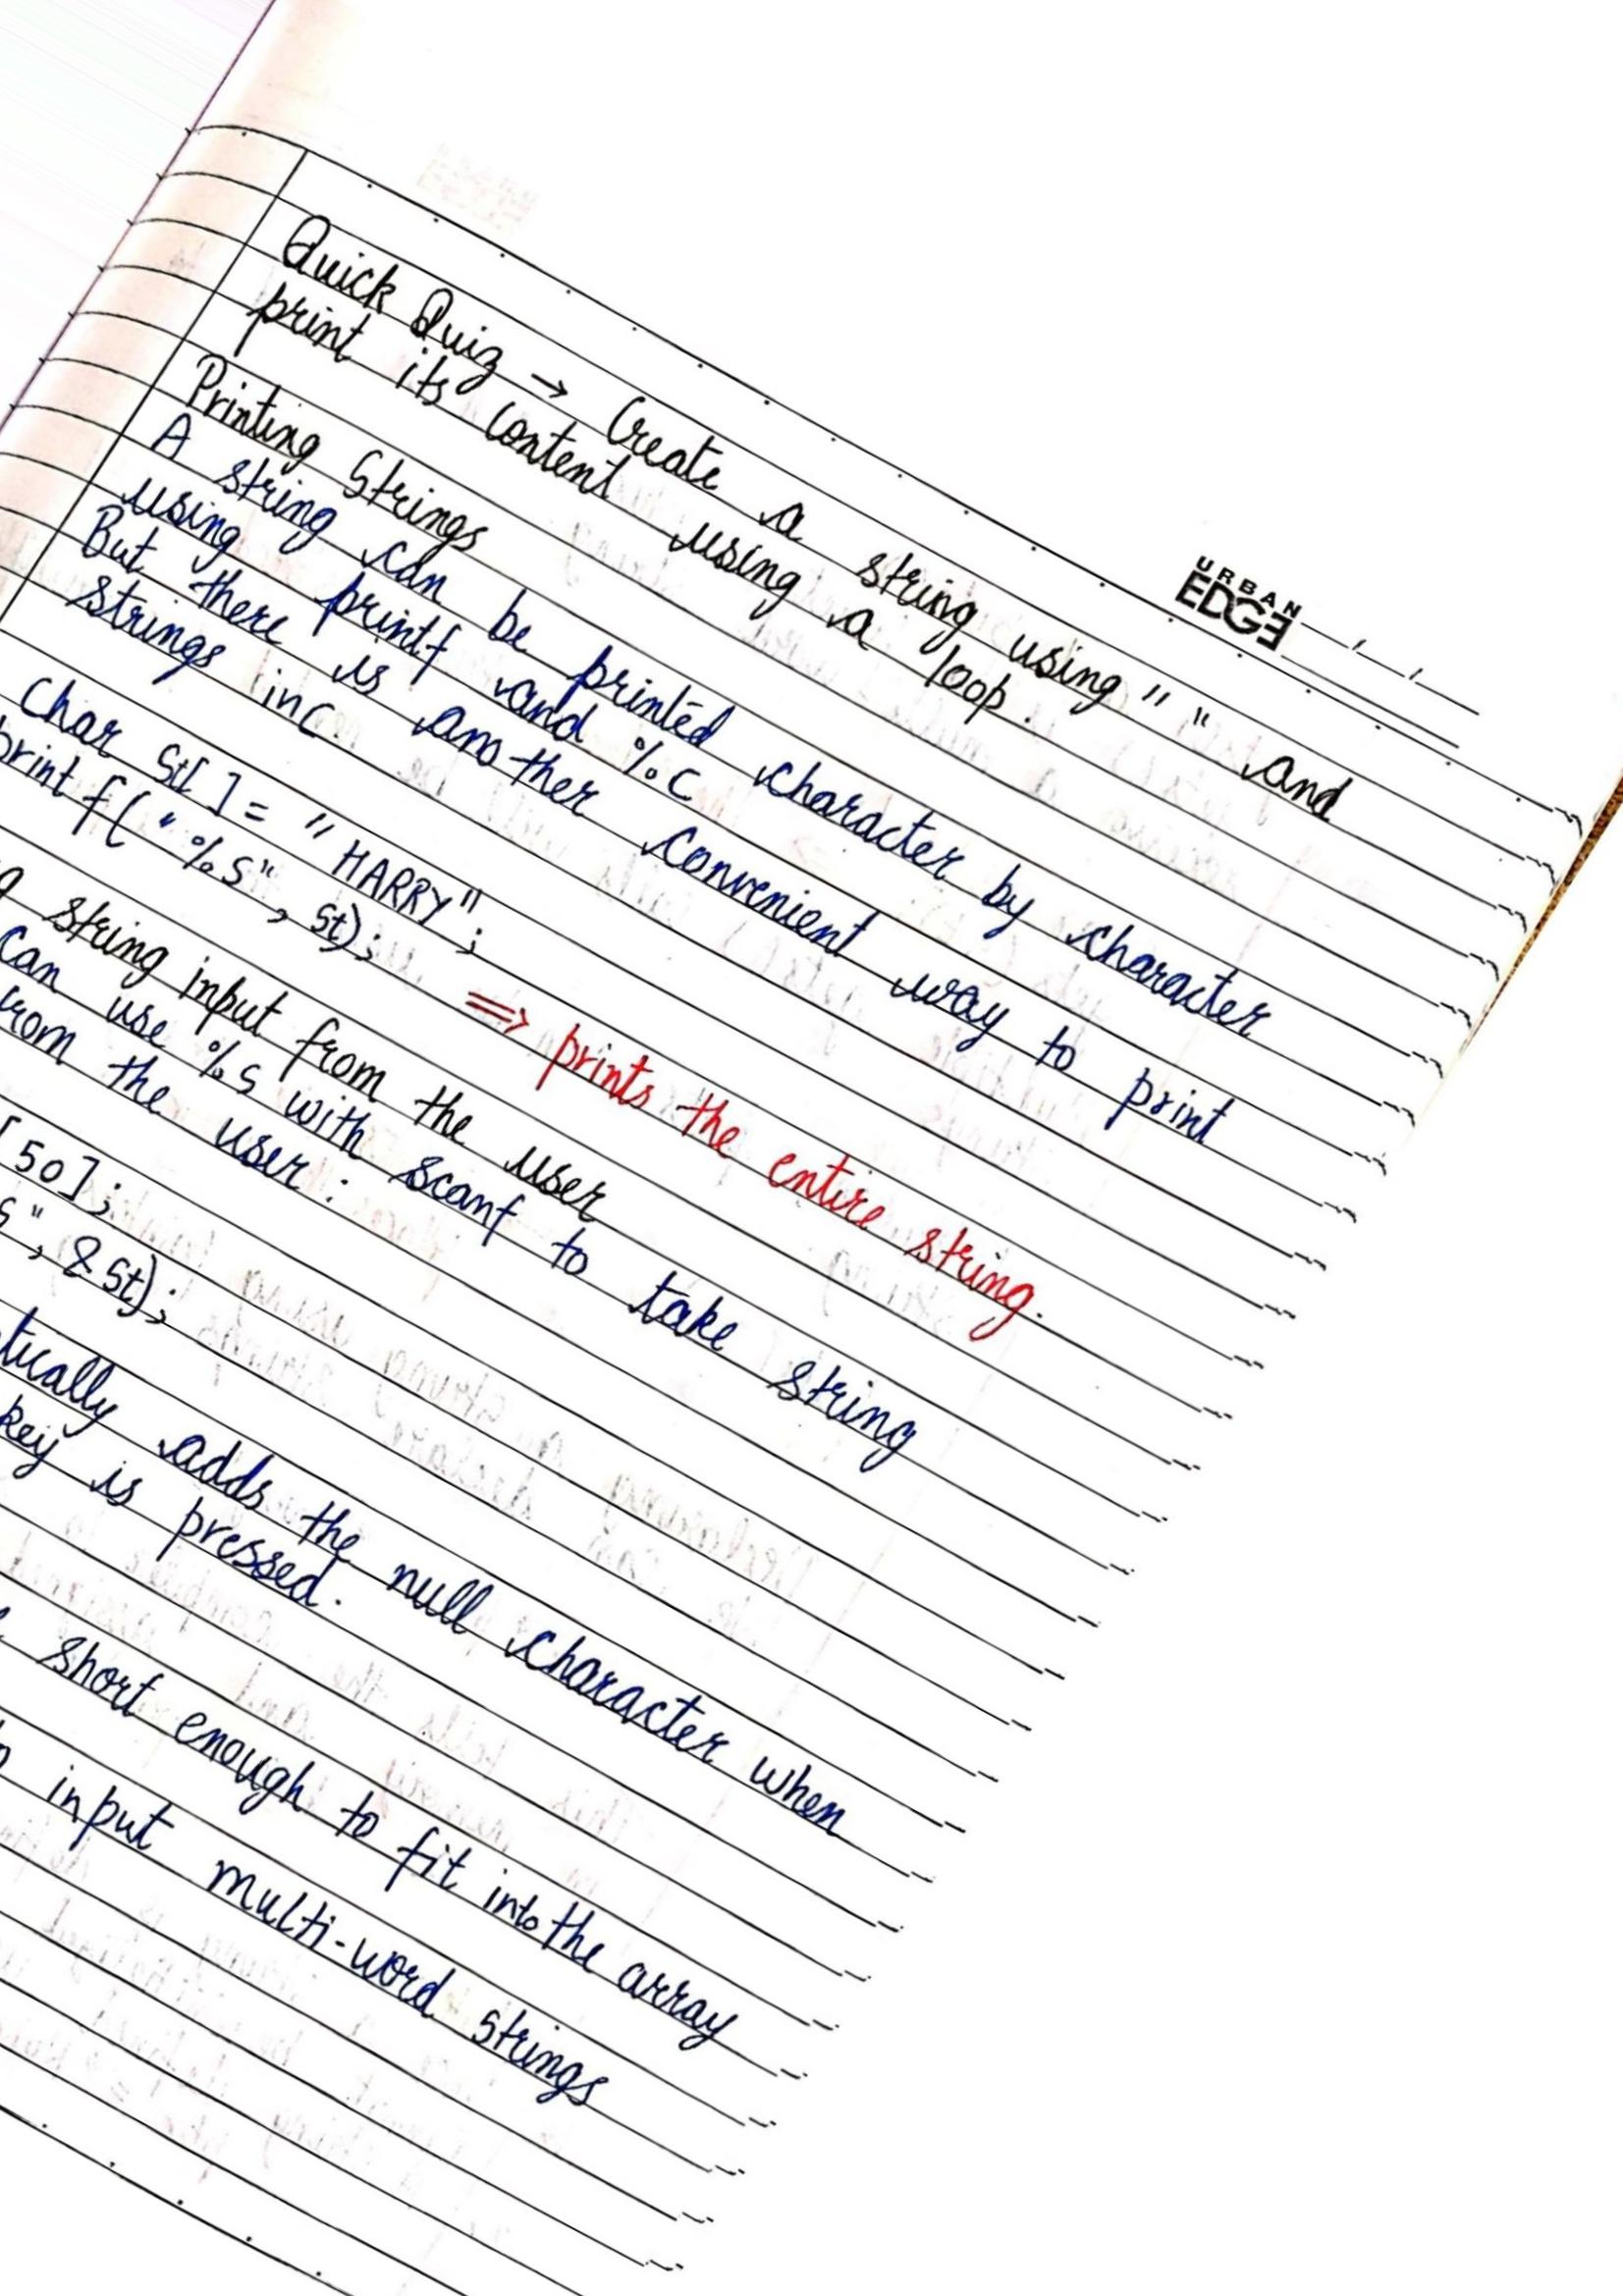 URBAN
EDGE
Quick Quiz → Create a string using " " and
print its content using a loop.
Printing Strings
A string can be printed character by character
using printf and %c
But there is another convenient way to print
strings in C.
Char St[ ] = "HARRY";
print f("%s", st); ⇒ prints the entire string.
string input from the user
can use %s with scanf to take string
from the user:
[50];
s", &st);
tically adds the null character when
key is pressed.
short enough to fit into the array
input multi-word strings